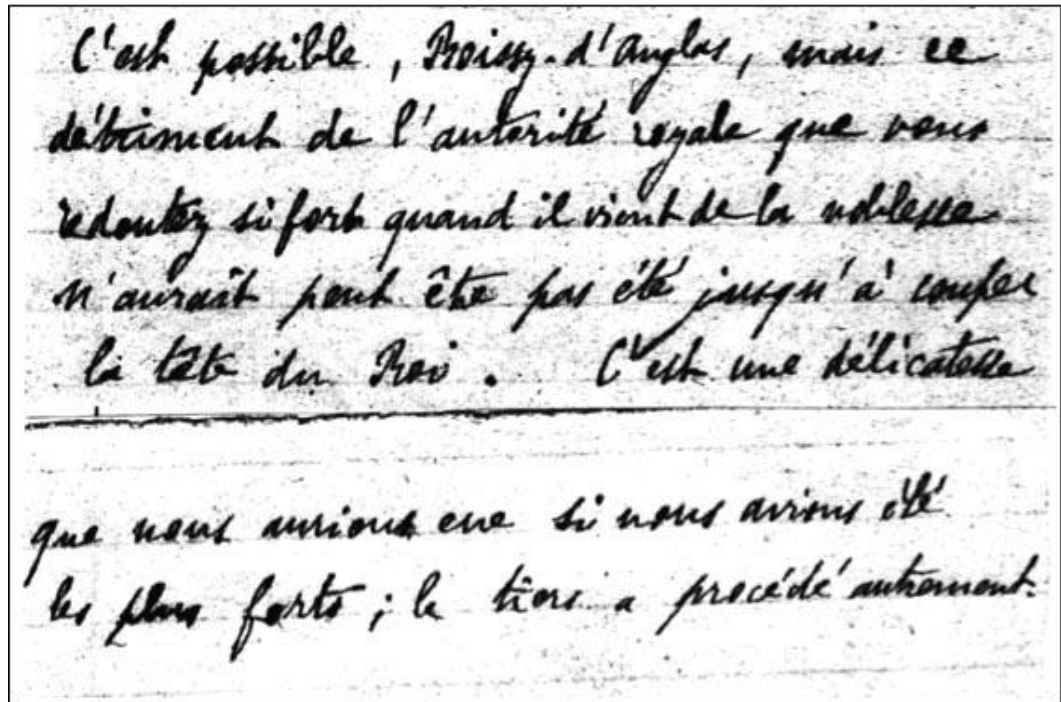 C'est possible, Boissy-d'Anglas, mais ce
détriment de l'autorité royale que vous
redoutez si fort quand il vient de la noblesse
n'aurait peut être pas été jusqu'à couper
la tête du Roi. C'est une délicatesse
que nous aurions eue si nous avions été
les plus forts ; le tiers a procédé autrement.